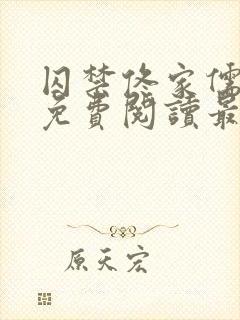 囚禁佟家儒
免費閱讀最
原天宏